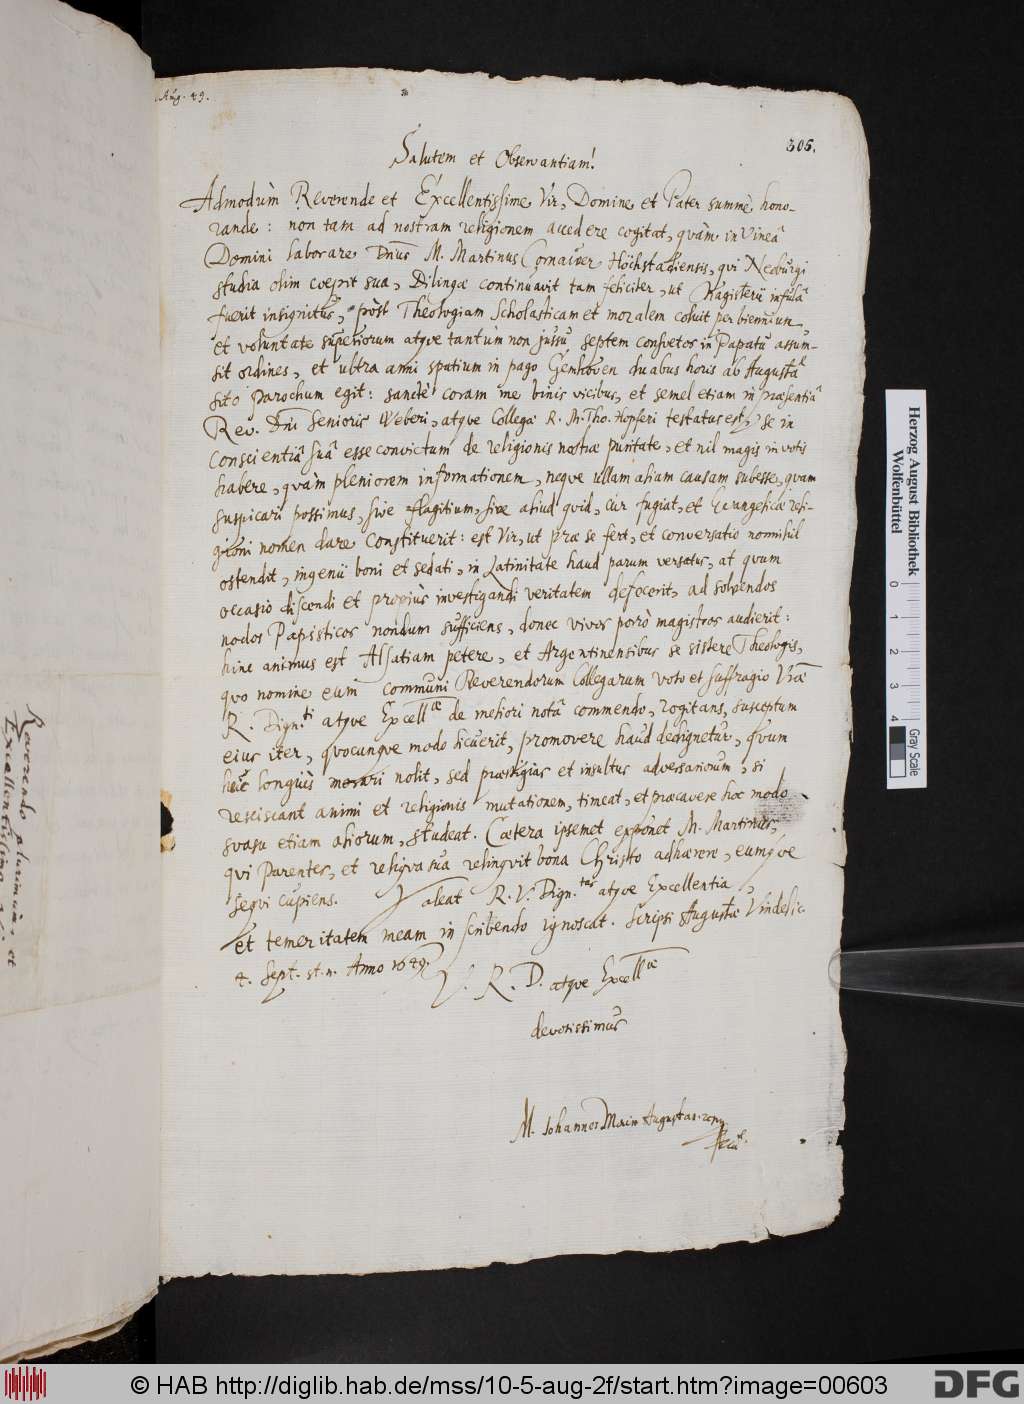 Aug. 49.
305.
Salutem et Observantiam!
Admodùm Reverende et Excellentissime Vir, Domine et Pater summè hono-
rande: non tam ad nostram religionem accedere cogitat, quàm in Vineâ
Domini laborare Dnus M. Martinus Cornaiver Höchstadiensis, qui Neoburgi
studia olim coepit sua, Dilingæ continuavit tam feliciter, ut Magisterii infulâ
fuerit insignitus, post Theologiam Scholasticam et moralem coluit per biennium,
et voluntate superiorum atque tantùm non jussu septem consuetos in Papatu assum-
sit ordines, et ultra anni spatium in pago duabus horis ab Augustâ
sito Parochum egit: sanctè coram me binis vicibus, et semel etiam in præsentiâ
Rev. Dni Senioris Weberi, atque Collegæ R. M. Tho. Hopferi testatus est, se in
Conscientiâ suâ esse convictum de religionis nostræ puritate, et nil magis in votis
habere, quàm pleniorem informationem, neque ullam aliam causam subesse, quam
suspicari possimus, sive flagitium, sive aliud quid, cur fugiat, et Evangelicæ reli-
gioni nomen dare constituerit: est Vir, ut præ se fert, et conversatio nonnihil
ostendit, ingenii boni et sedati, in Latinitate haud parum versatus, at quum
occasio discendi et propiùs investigandi veritatem defecerit, ad solvendos
nodos Papisticos nondum sufficiens, donec vivos porrò magistros audierit:
hinc animus est Alsatiam petere, et Argentinensibus se sistere Theologis,
quo nomine eum communi Reverendorum Collegarum voto et suffragio Vræ
R. Dign.ti atque Excell.æ de meliori notâ commendo, rogitans, susceptum
eius iter, quocunque modo licuerit, promovere haud dedignetur, quum
heic longiùs morari nolit, sed præstigias et insultus adversariorum, si
resciscant animi et religionis mutationem, timeat, et præcavere hoc modo
suasu etiam aliorum, studeat. Cætera ipsemet exponet M. Martinus,
qui Parentes, et reliqua sua relinquit bona Christo adhærere, eumque
sequi cupiens. Valeat R. V. Dign.tas atque Excellentia,
et temeritatem meam in scribendo ignoscat. Scripsi Augustæ Vindelic.
4. Sept. st. n. Anno 1649.
V. R. D. atque Excell.æ
devotissimus
M. Johannes
Reverendo plurimùm, et
Excellentissimo
Herzog August Bibliothek
Wolfenbüttel
0 1 2 3 4
Gray Scale
© HAB http://diglib.hab.de/mss/10-5-aug-2f/start.htm?image=00603
DFG